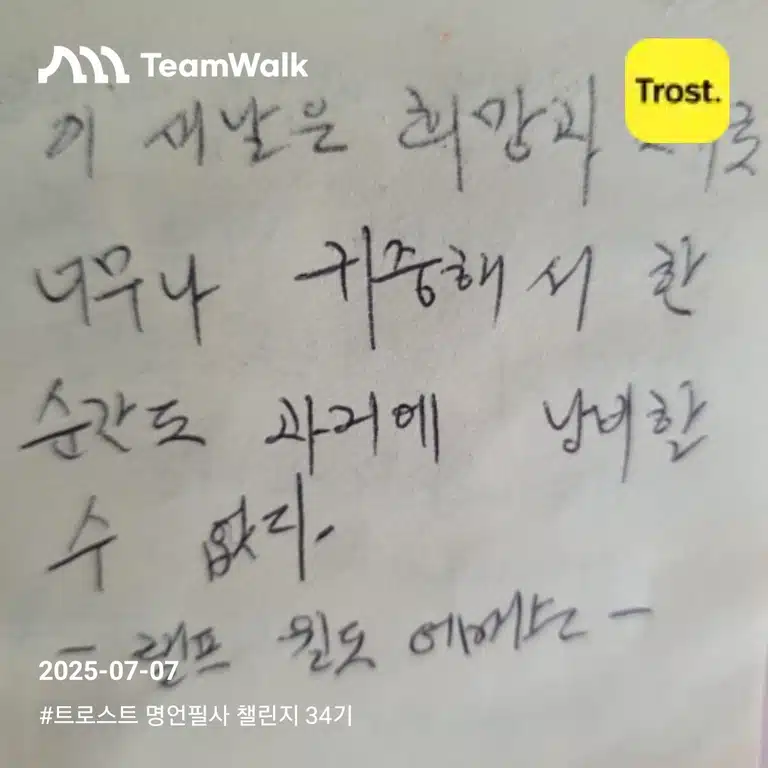 TeamWalk
Trost.
이 새날은 희망과
너무나 귀중해서 한
순간도 과거에 낭비할
수 없다.
- 랄프 왈도 에머슨 -
2025-07-07
#트로스트 명언필사 챌린지 34기